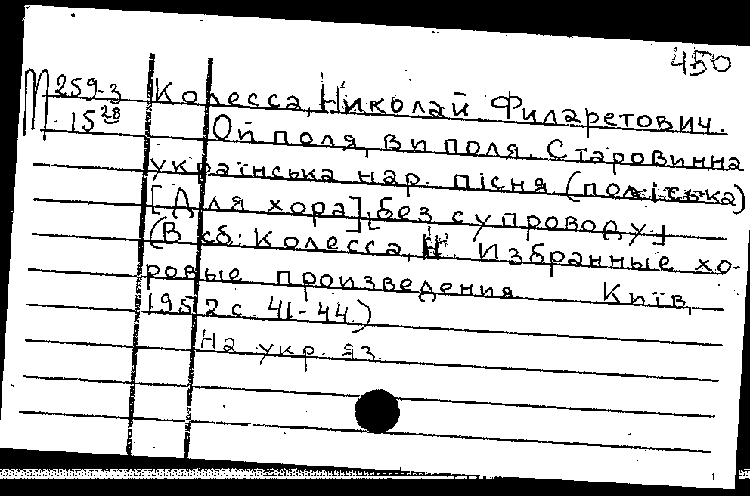 450
М 259-3 Колесса, Николай Филаретович.
15 28 Ой поля, ви поля. Старовинна
українська нар. пісня (поліська)
[Для хора], [без супроводу]
(В сб: Колесса, Н. Избранные хо-
ровые произведения Київ,
1952 с. 41-44.)
На укр. яз.